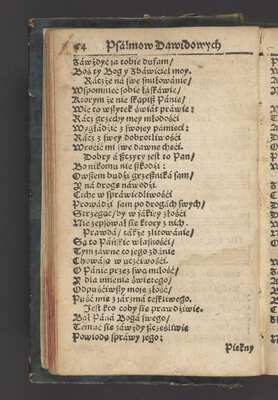 54 Psalmow Dawidowych
Zawżdyć ia tobie dufam/
Boś ty Bog y Zbawiciel moy.
Rácż że na swe smiłowanie/
Wspomnieć sobie łáskáwie:
Ktorym że nie skąpił Pánie/
Wie to wszytek świát práwie:
Rácż grzechy mey młodości
Wygłádźić z swojey pámięci:
Rácż z swey dobrotliwości
Wrocić mi swe dawne chęci.
Dobry á szcżyry jest to Pan/
Bo nikomu nie szkodźi:
Owszem ludźi grzesznika sam/
Y ná drogę náwodźi.
Ciche w spráwiedliwości
Prowádźi sam po drogách swych/
Strzegąc/ by w jákiey złości
Nie zepsował sie ktory z nich.
Prawda/ tákże zlitowanie/
Są to Páńskie własności/
Tym záwżdy to jego zdánie
Chowáją w ucżćiwości.
O Pánie przez swą miłość/
Y dla imienia świętego/
Odpuśćiwszy moje złość/
Puść mię z járzmá teskliwego.
Jest kto coby sie prawdźiwie
Bał Páná Bogá swego/
Temuć sie záwżdy szcżęśliwie
Powiodą spráwy jego:
Piękny